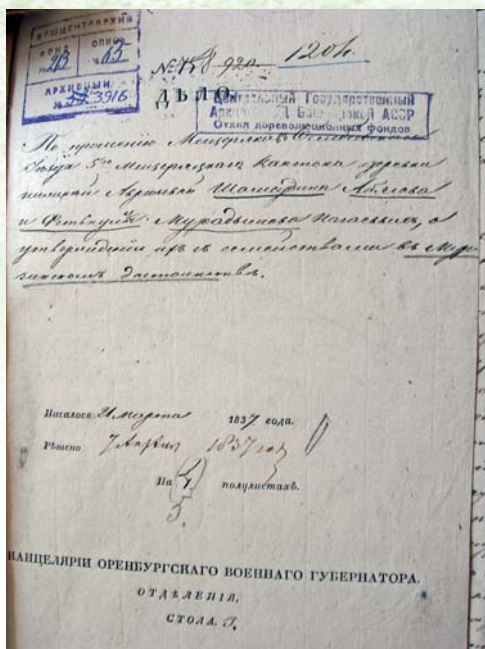 БАШЦЕНТРАРХИВ
ФОНД ОПИСЬ
№ 2/3 № 63
АРХИВНЫЙ
№ 3916
№ 920 1204.
ДѢЛО.
Центральный Государственный
Архив Башкирской АССР
Отдел дореволюционных фондов
По прошенію Мещеряковъ
Уѣзда 5го Мещеряцкаго Кантона деревни
Шамсудина Абзлова
и Мурадымова Ногаевыхъ, о
утвержденіи ихъ съ семействами въ Мур-
зинскомъ достоинствѣ.
Началось 21 Марта 1837 года.
Рѣшено 7 Апрѣля 1837 году
На полулистахъ.
КАНЦЕЛЯРІИ ОРЕНБУРГСКАГО ВОЕННАГО ГУБЕРНАТОРА.
ОТДѢЛЕНІЯ,
СТОЛА